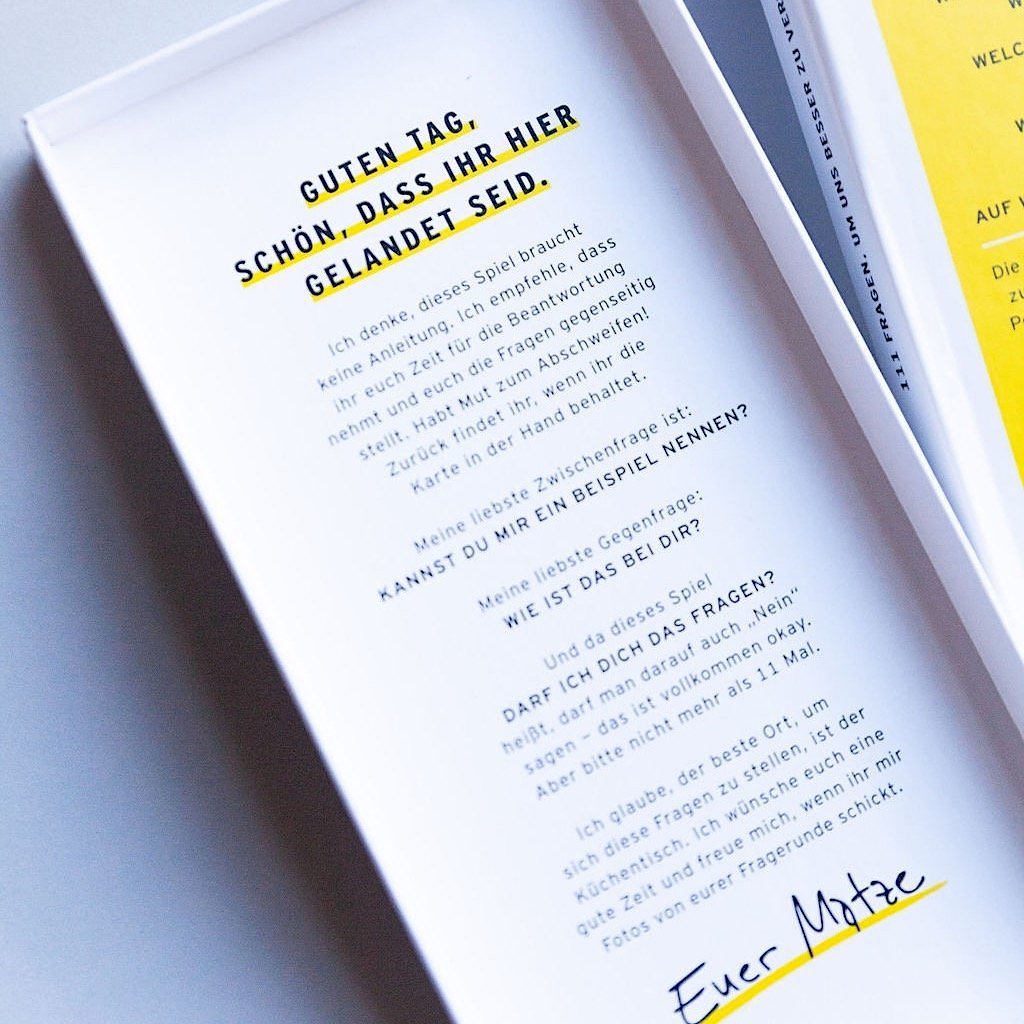 GUTEN TAG,
SCHÖN, DASS IHR HIER
GELANDET SEID.
Ich denke, dieses Spiel braucht
keine Anleitung. Ich empfehle, dass
ihr euch Zeit für die Beantwortung
nehmt und euch die Fragen gegenseitig
stellt. Habt Mut zum Abschweifen!
Zurück findet ihr, wenn ihr die
Karte in der Hand behaltet.
Meine liebste Zwischenfrage ist:
KANNST DU MIR EIN BEISPIEL NENNEN?
Meine liebste Gegenfrage:
WIE IST DAS BEI DIR?
Und da dieses Spiel
DARF ICH DICH DAS FRAGEN?
heißt, darf man darauf auch „Nein“
sagen – das ist vollkommen okay.
Aber bitte nicht mehr als 11 Mal.
Ich glaube, der beste Ort, um
sich diese Fragen zu stellen, ist der
Küchentisch. Ich wünsche euch eine
gute Zeit und freue mich, wenn ihr mir
Fotos von eurer Fragerunde schickt.
Euer Matze
111 FRAGEN, UM UNS BESSER ZU
AUF
Die